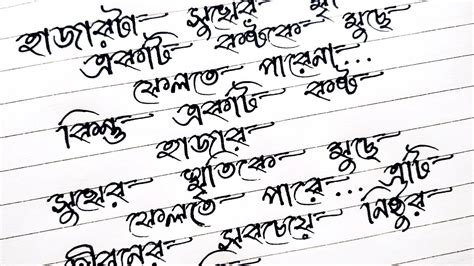 হাজারটা সুখের স্মৃ
একটি কষ্টকে মুছে
ফেলতে পারেনা...
কিন্তু একটি কষ্ট
হাজার
সুখের স্মৃতিকে মুছে
ফেলতে পারে... এটি
জীবনের সবচেয়ে নিষ্ঠুর